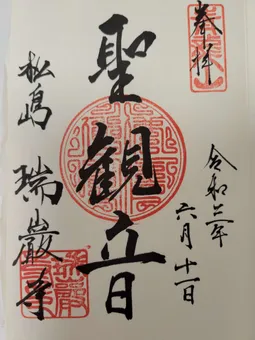 奉拝
令和三年
六月十一日
聖観音
松嶋 瑞巌寺